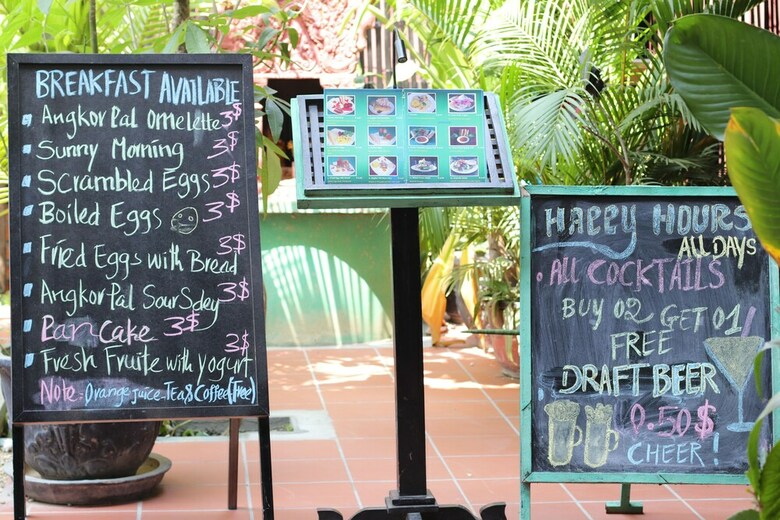 BREAKFAST AVAILABLE
Angkor Pal Omelette 3$
Sunny Morning 3$
Scrambled Eggs 3$
Boiled Eggs 3$
Fried Eggs with Bread 3$
Angkor Pal Sour Sdey 3$
Pan Cake 3$
Fresh Fruite with yogurt 3$
Note: Orange juice-Tea & Coffee (free)
HAPPY HOURS
ALL DAYS
ALL COCKTAILS
BUY 02 GET 01
FREE
DRAFT BEER
0.50$
CHEER!